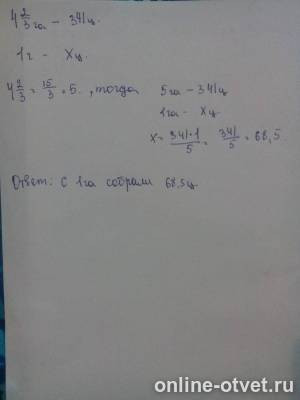 4 2/3 га - 341ц.
1г - Xц.
4 2/3 = 15/3 = 5. , тогда 5га - 341ц
1га - Xц.
X = 341·1/5 = 341/5 = 68,5.
Ответ: С 1га собрали 68,5ц.
online-otvet.ru